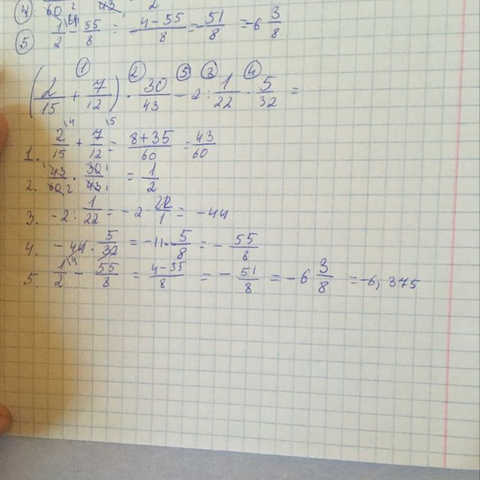 ④ 60 2 43 2
⑤ 1/2 \4 - 55/8 = (4-55)/8 = -51/8 = -6 3/8
① ② ⑤ ③ ④
(2/15 + 7/12) · 30/43 - 2 : 1/22 · 5/32 =
1. 2/15 \4 + 7/12 \5 = (8+35)/60 = 43/60
2. 43/60 · 30/43 = 1/2
3. -2 : 1/22 = -2 · 22/1 = -44
4. -44 · 5/32 = -11 · 5/8 = - 55/8
5. 1/2 \4 - 55/8 = (4-55)/8 = - 51/8 = -6 3/8 = -6,375